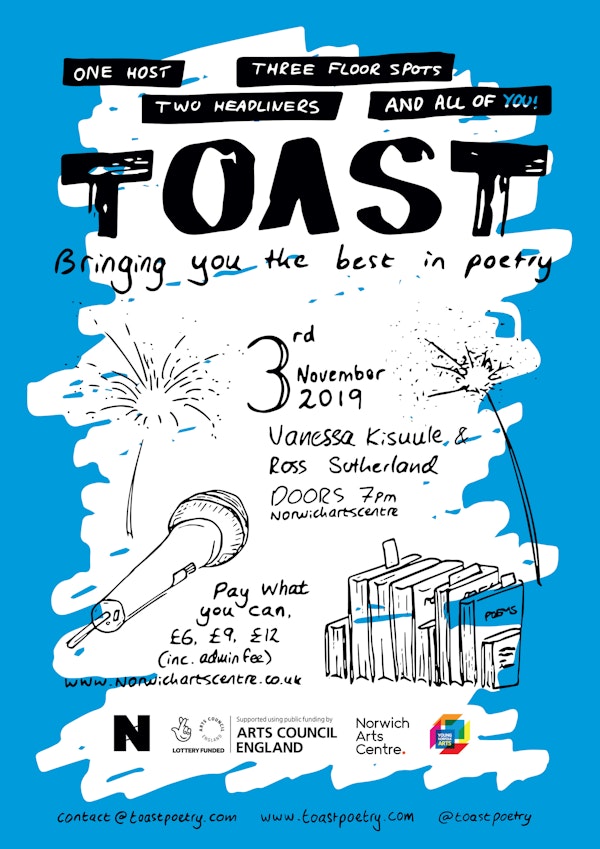 ONE HOST
THREE FLOOR SPOTS
TWO HEADLINERS
AND ALL OF YOU!
TOAST
Bringing you the best in poetry
3rd
November
2019
Vanessa Kisuule &
Ross Sutherland
DOORS 7pm
Norwichartscentre
Pay what
you can,
£6, £9, £12
(inc. admin fee)
www.Norwichartscentre.co.uk
POEMS
N
LOTTERY FUNDED
ARTS COUNCIL
ENGLAND
Supported using public funding by
ARTS COUNCIL
ENGLAND
Norwich
Arts
Centre.
YOUNG
NORFOLK
ARTS
contact@toastpoetry.com
www.toastpoetry.com
@toastpoetry